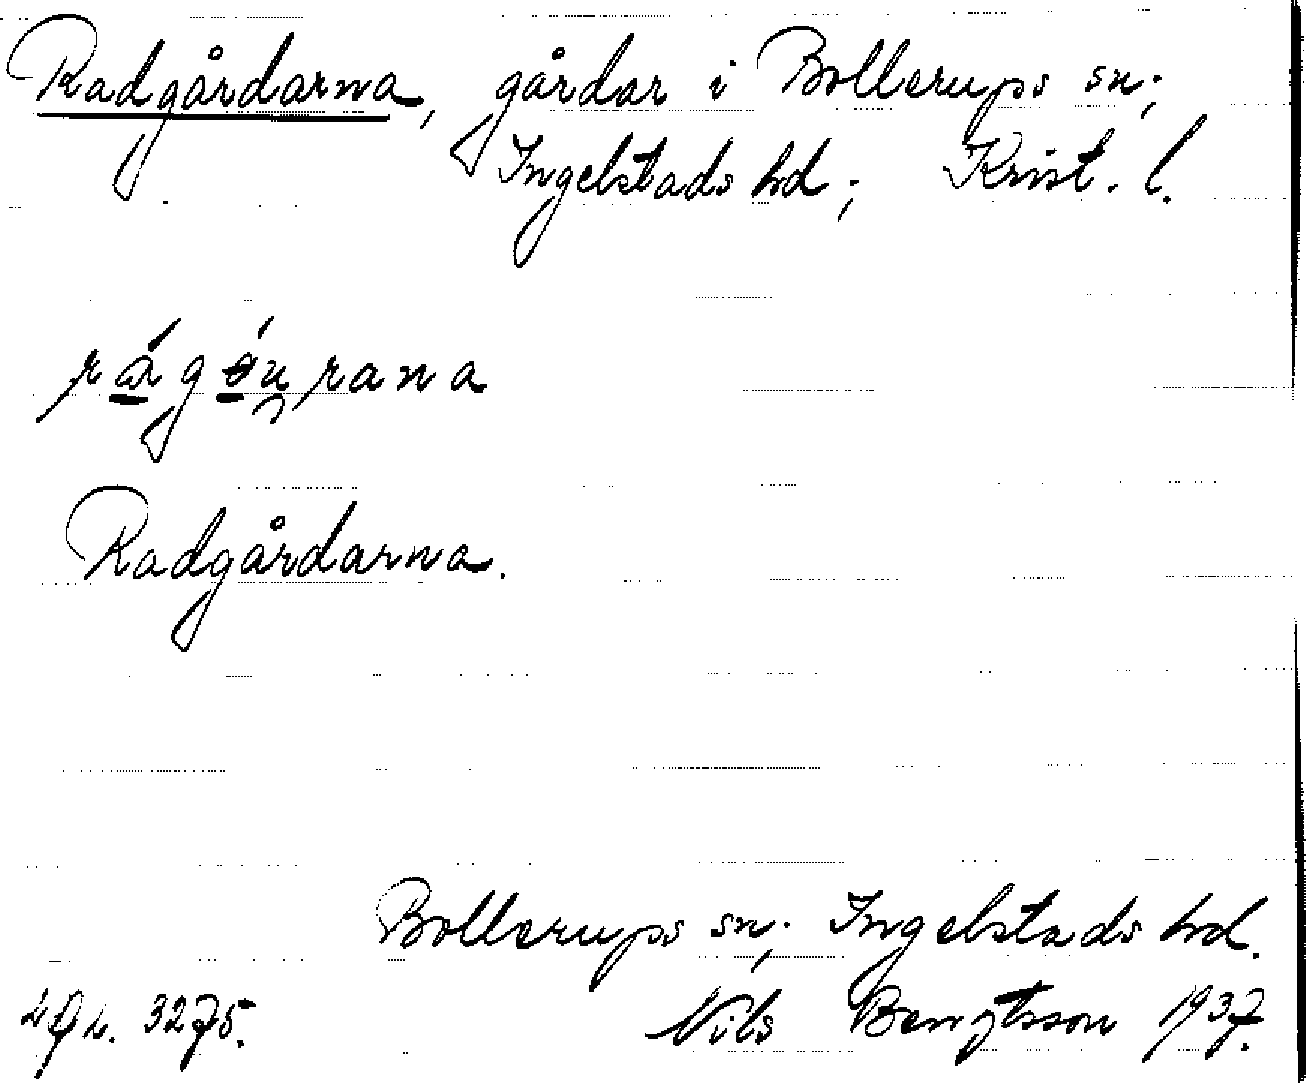 Radgårdarna, gårdar i Bollerups sn;
Ingelstads hd; Krist. l.
Radgårdarna.
Bollerups sn; Ingelstads hd.
3275. Nils Bengtsson 1937.